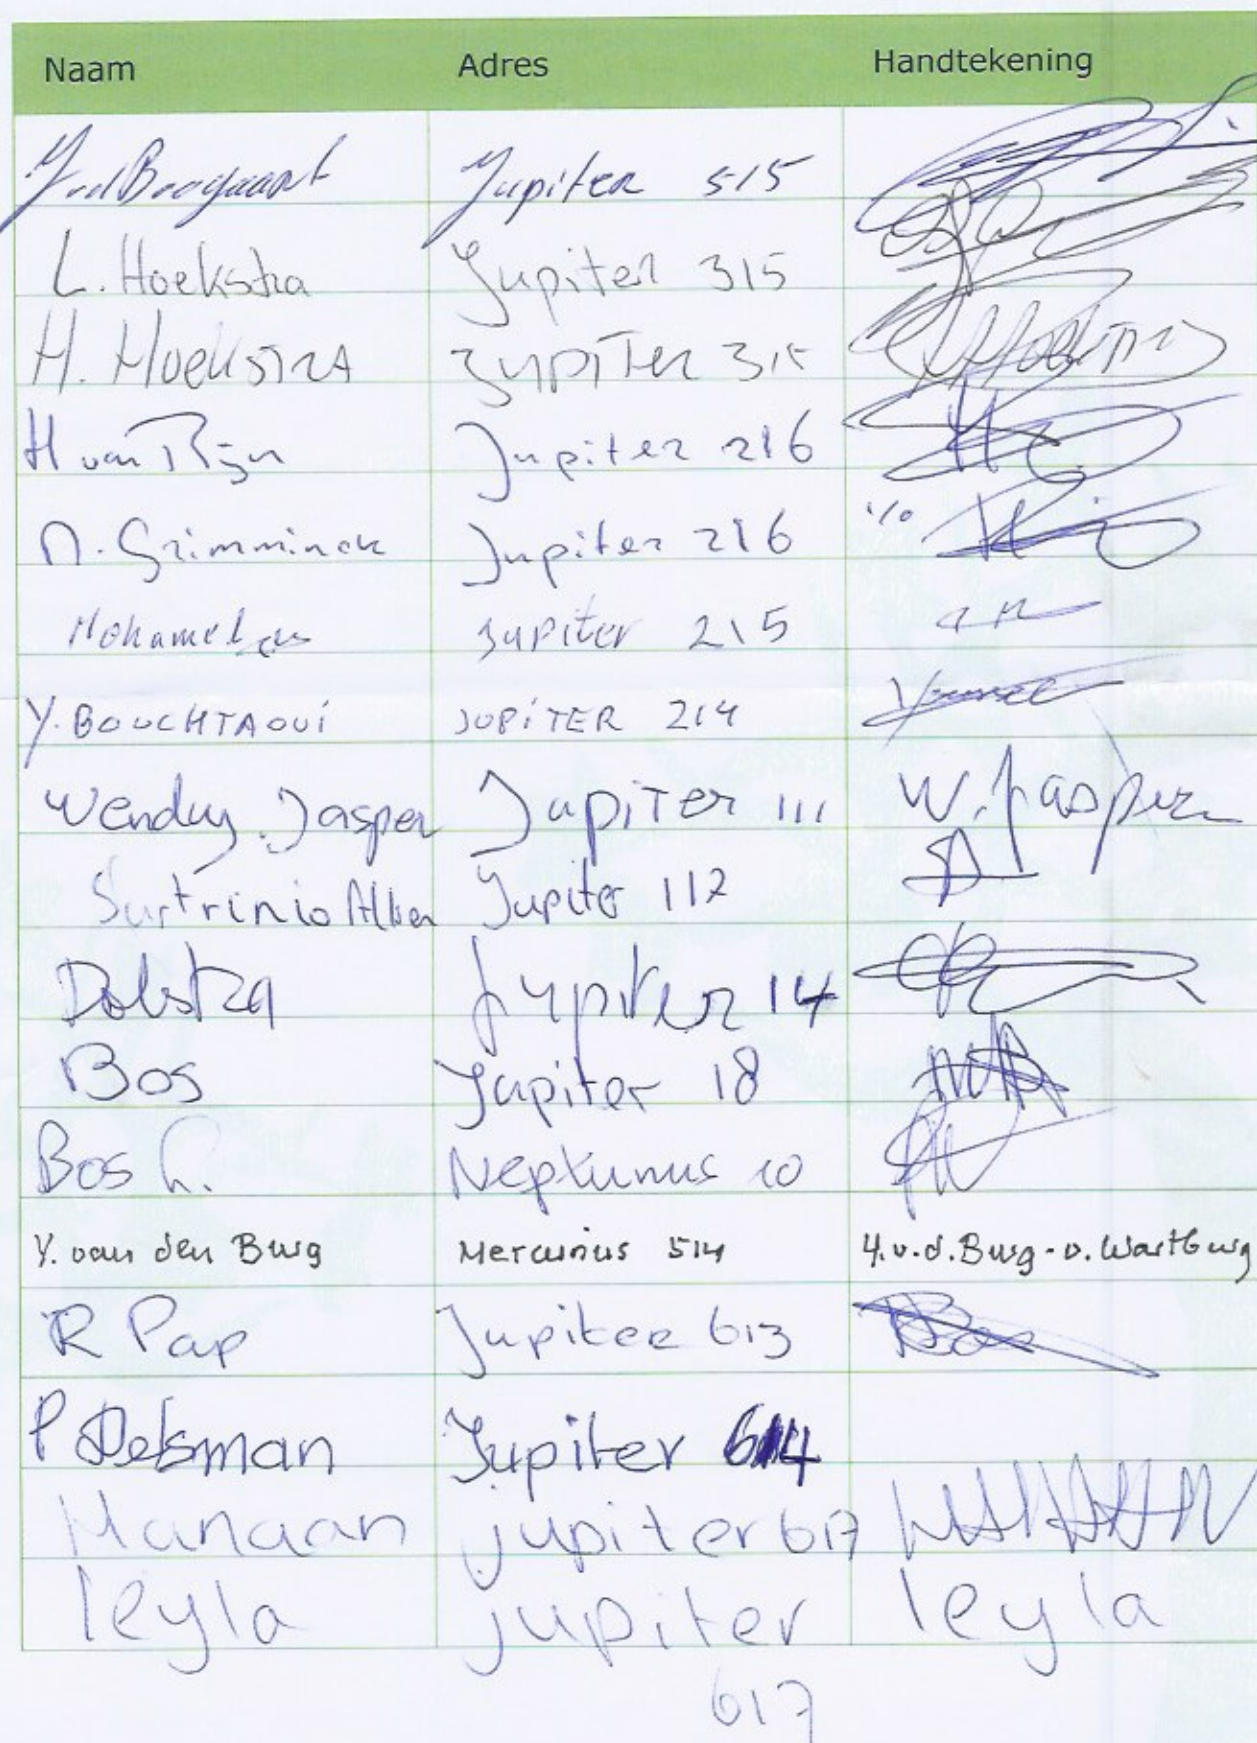 Naam Adres Handtekening
Jupiter 515
L. Hoekstra Jupiter 315
H. Hoekstra Jupiter 315 Hoekstra
H van Rijn Jupiter 216
M. Grimminck Jupiter 216 i/o
Mohamed Jupiter 215
Y. BOUCHTAOUI JUPITER 214
Wendy Jasper Jupiter 111 W. Jasper
Jupiter 112
Dolstra Jupiter 14
Bos Jupiter 18
Bos Neptunus 10
Y. van den Burg Mercurius 514 Y.v.d. Burg - v. Wartburg
R Pap Jupiter 613
P Delsman Jupiter 614
Hanaan jupiter 617
leyla jupiter leyla
617